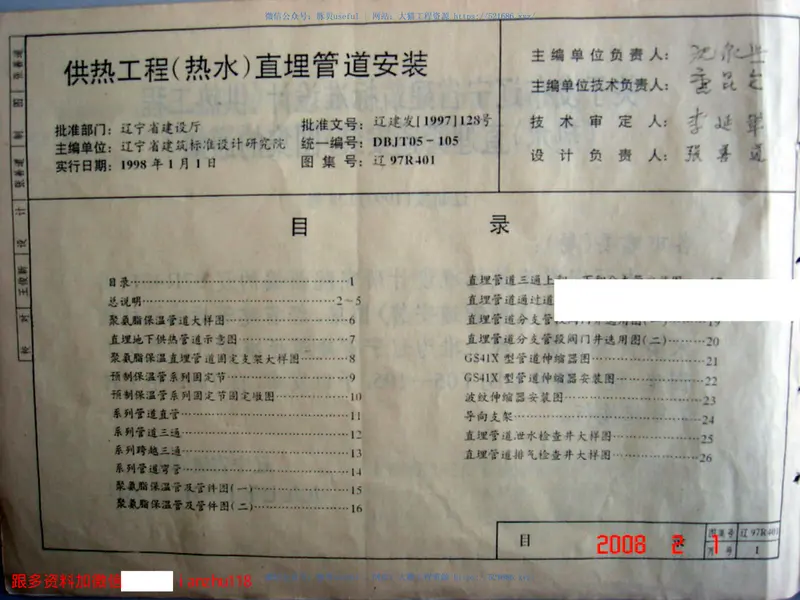 微信公众号: 陈贝useful | 网站: 大猫工程资源 https://521686.xyz/
供热工程(热水)直埋管道安装
批准部门: 辽宁省建设厅
主编单位: 辽宁省建筑标准设计研究院
实行日期: 1998年1月1日
批准文号: 辽建发[1997]128号
统一编号: DBJT05-105
图集号: 辽97R401
主编单位负责人:
主编单位技术负责人:
技术审定人:
设计负责人: 张善道
目 录
目录 1
总说明 2~5
聚氨脂保温管道大样图 6
直埋地下供热管道示意图 7
聚氨脂保温直埋管道固定支架大样图 8
预制保温管系列固定节 9
预制保温管系列固定节固定墩图 10
系列管道直管 11
系列管道三通 12
系列跨越三通 13
系列管道弯管 14
聚氨脂保温管及管件图(一) 15
聚氨脂保温管及管件图(二) 16
直埋管道三通上
直埋管道通过道
直埋管道分支管段阀门井选用图(一) 19
直埋管道分支管段阀门井选用图(二) 20
GS41X型管道伸缩器图 21
GS41X型管道伸缩器安装图 22
波纹伸缩器安装图 23
导向支架 24
直埋管道泄水检查井大样图 25
直埋管道排气检查井大样图 26
张善道
制图
张善道
设计
王俊新
校对
目 录
图集号 辽97R401
页号 1
2008 2 1
跟多资料加微信